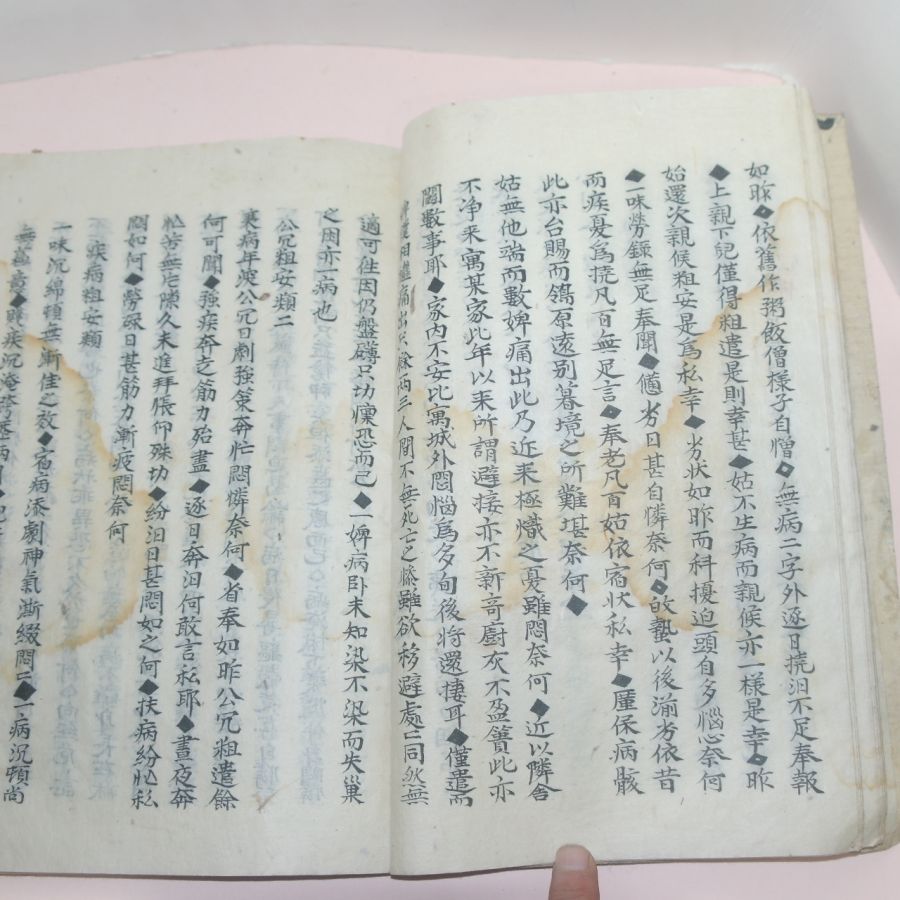 如昨◆依舊作粥飯僧樣子自憎◆無病二字外逐日撓汨不足奉報
◆上親下兒僅得粗遣是則幸甚◆姑不生病而親候亦一樣是幸◆昨
始還次親候粗安是爲私幸◆劣狀如昨而科擾迫頭自多惱心奈何
◆一味勞碌無足奉聞◆憊劣日甚自憐奈何◆啓蟄以後湔劣依昔
而疾憂爲撓凡百無足言◆奉老凡百姑依宿狀私幸◆厪保病骸
此亦台賜而鴒原遠別暮境之所難堪奈何◆
姑無他端而數婢痛出此乃近來極熾之憂雖悶奈何◆近以隣舍
不净来寓某家比年以来所謂避接亦不新奇廚灰不盈簣此亦
關數事耶◆家內不安比寓城外悶惱爲多旬後將還棲耳◆僅遣而
婢僕相繼痛出只餘兩三人間不無死亡之慘雖欲移避處處同然無
適可往因仍盤礴只切懍恐而已◆一婢病臥未知染不染而失巢
之困亦一病也
公冗粗安類二
衰病年逾公冗日劇強策奔忙悶憐奈何◆省奉如昨公冗粗遣餘
何可聞◆強疾奔走筋力殆盡◆逐日奔汨何敢言私耶◆晝夜奔
忪苦無片隙久未進拜悵仰殊切◆紛汨日甚悶如之何◆扶病紛忙私
悶如何◆勞碌日甚筋力漸疲悶奈何
疾病粗安類
一味沉綿頓無漸佳之效◆宿病添劇神氣澌綴悶已◆一病沉頓尚
無